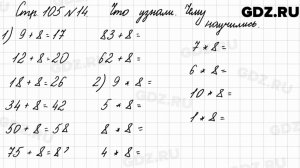 Стр. 105 №14. Что узнали. Чему научились
1) 9 + 8 = 17
12 + 8 = 20
18 + 8 = 26
34 + 8 = 42
50 + 8 = 58
75 + 8 = 8
83 + 8 =
62 + 8 =
2) 9 * 8 =
5 * 8 =
8 * 8 =
4 * 8 =
7 * 8 =
6 * 8 =
10 * 8 =
1 * 8 =
GDZ.RU
GDZ.RU
GDZ.RU